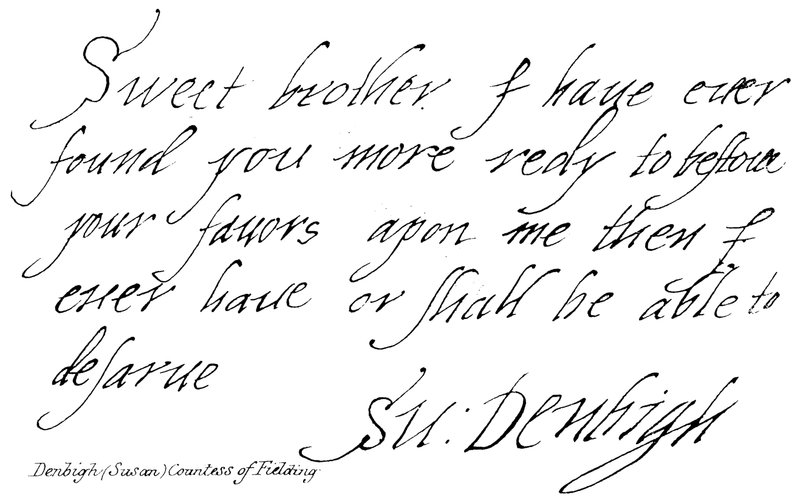 Sweet brother. I haue euer
found you more redy to bestowe
your fauors apon me then I
euer haue or shall be able to
desarue
Su: Denbigh
Denbigh (Susan) Countess of Fielding